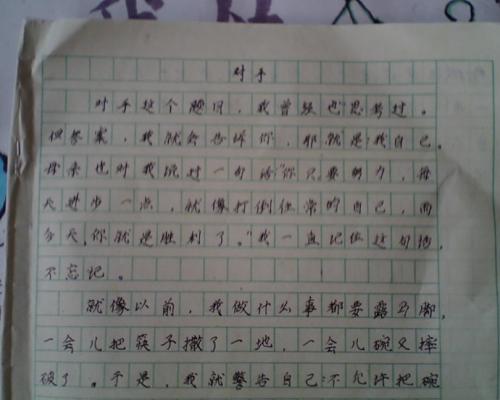 对手
对手这个题目，我曾经也思考过。
但答案，我就会告诉你，那就是：我自己。
母亲也对我说过一句话“你只要努力，每
天进步一点，就像打倒往常的自己，而
今天，你就是胜利了。”我一直记住这句话，
不忘记。
就像以前，我做什么事都要露马脚，
一会儿把筷子撒了一地，一会儿碗又摔
破了。于是，我就警告自己：不允许把碗